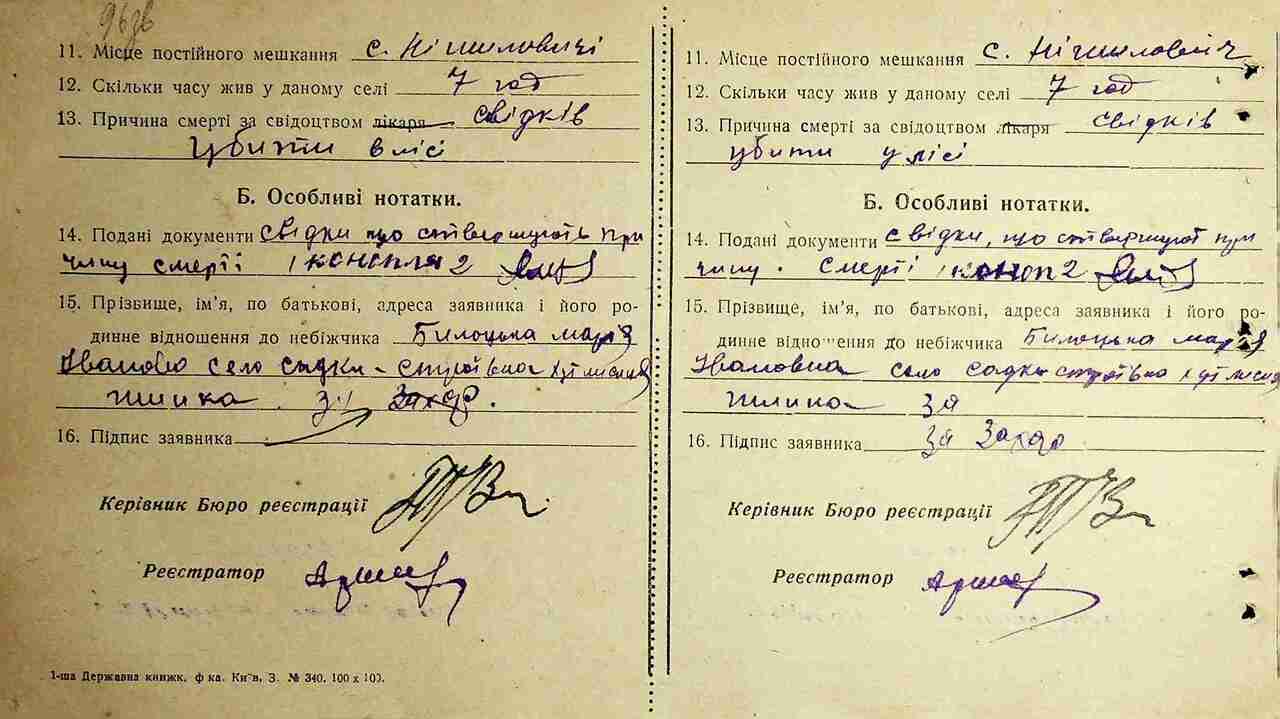 11. Місце постійного мешкання с. Нігиловичі
12. Скільки часу жив у даному селі 7 год
13. Причина смерті за свідоцтвом лікаря свідків
убити в лісі
Б. Особливі нотатки.
14. Подані документи свідки що ствержують при
чину смерті
15. Прізвище, ім'я, по батькові, адреса заявника і його ро-
динне відношення до небіжчика Билоцька марія
Ивановю село садки-
жилка
16. Підпис заявника
Керівник Бюро реєстрації
Реєстратор
1-ша Державна книжк. ф-ка. Київ, З. № 340. 100 х 100.
11. Місце постійного мешкання с.
12. Скільки часу жив у даному селі 7 год
13. Причина смерті за свідоцтвом лікаря свідків
убити у лісі
Б. Особливі нотатки.
14. Подані документи свідки, що при
чину. смерті
15. Прізвище, ім'я, по батькові, адреса заявника і його ро-
динне відношення до небіжчика Билоцька марія
Ивановна село садки
за
16. Підпис заявника за
Керівник Бюро реєстрації
Реєстратор